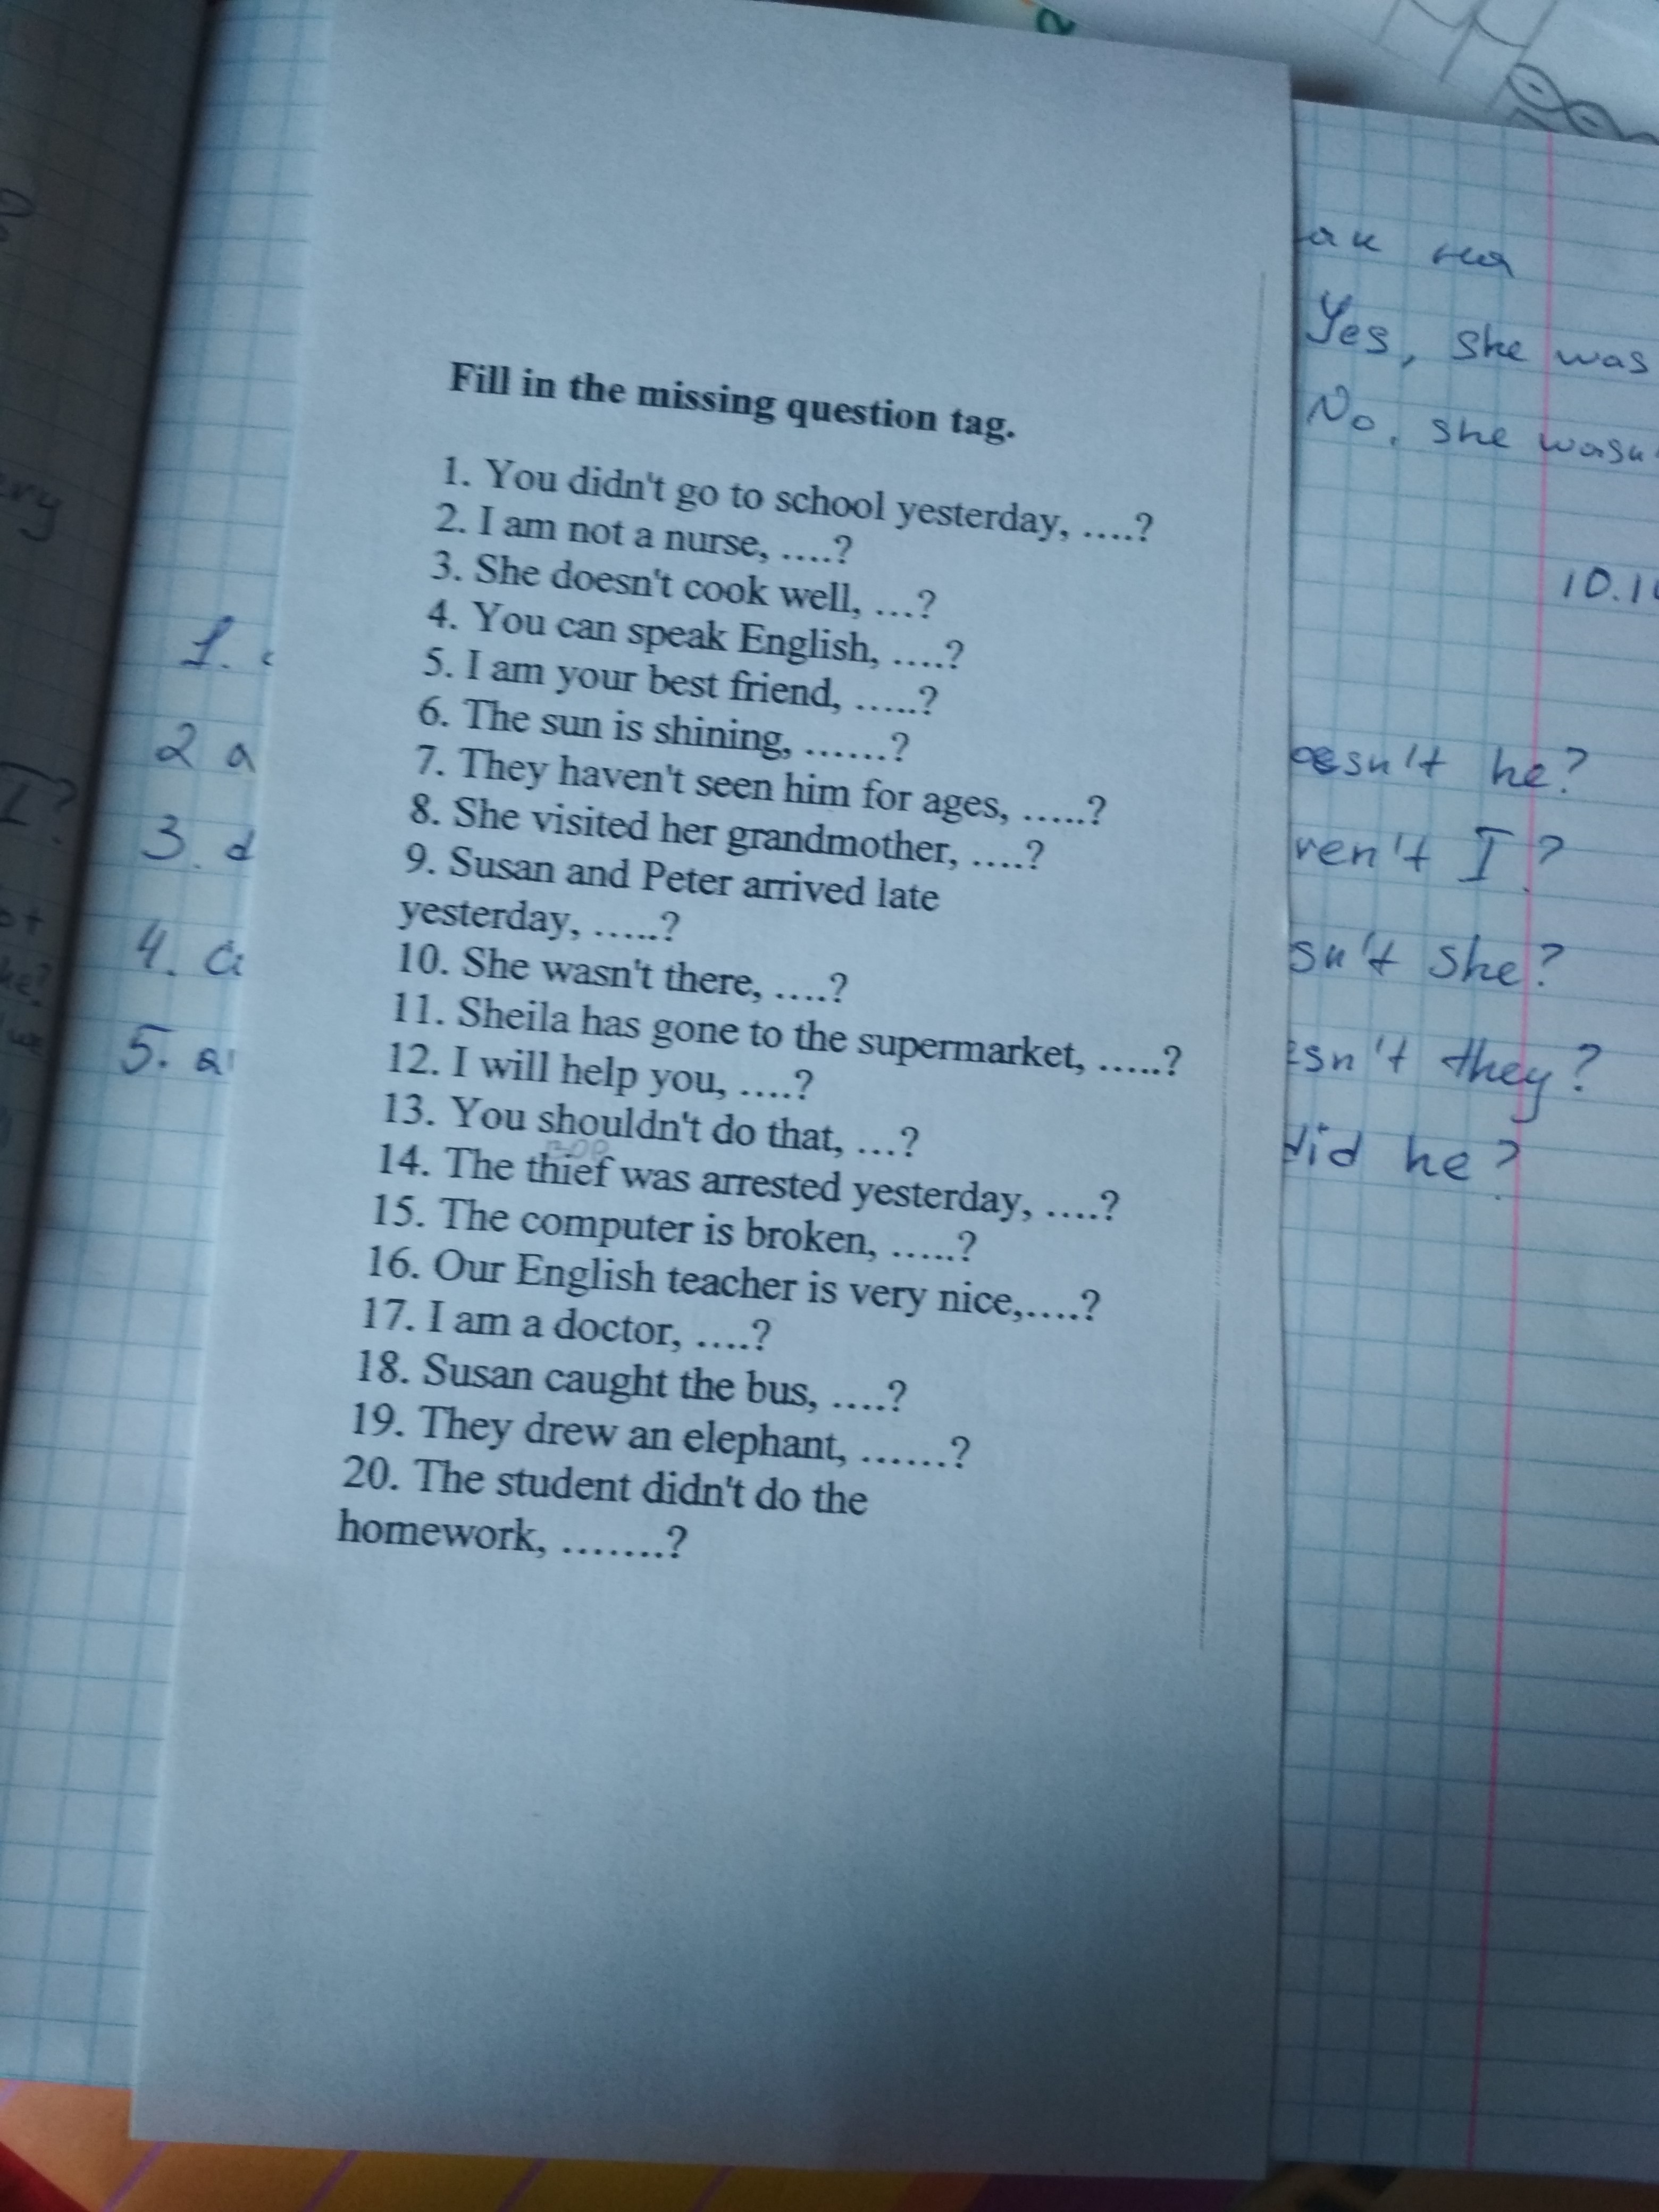 Fill in the missing question tag.
1. You didn't go to school yesterday, ....?
2. I am not a nurse, ....?
3. She doesn't cook well, ...?
4. You can speak English, ....?
5. I am your best friend, .....?
6. The sun is shining, ......?
7. They haven't seen him for ages, .....?
8. She visited her grandmother, ....?
9. Susan and Peter arrived late
yesterday, .....?
10. She wasn't there, ....?
11. Sheila has gone to the supermarket, .....?
12. I will help you, ....?
13. You shouldn't do that, ...?
14. The thief was arrested yesterday, ....?
15. The computer is broken, .....?
16. Our English teacher is very nice,....?
17. I am a doctor, ....?
18. Susan caught the bus, ....?
19. They drew an elephant, ......?
20. The student didn't do the
homework, .......?
I?
1.
2 a
3. d
4. a
5. a
Yes, she was
No, she
he?
I?
she?
they?
did he?